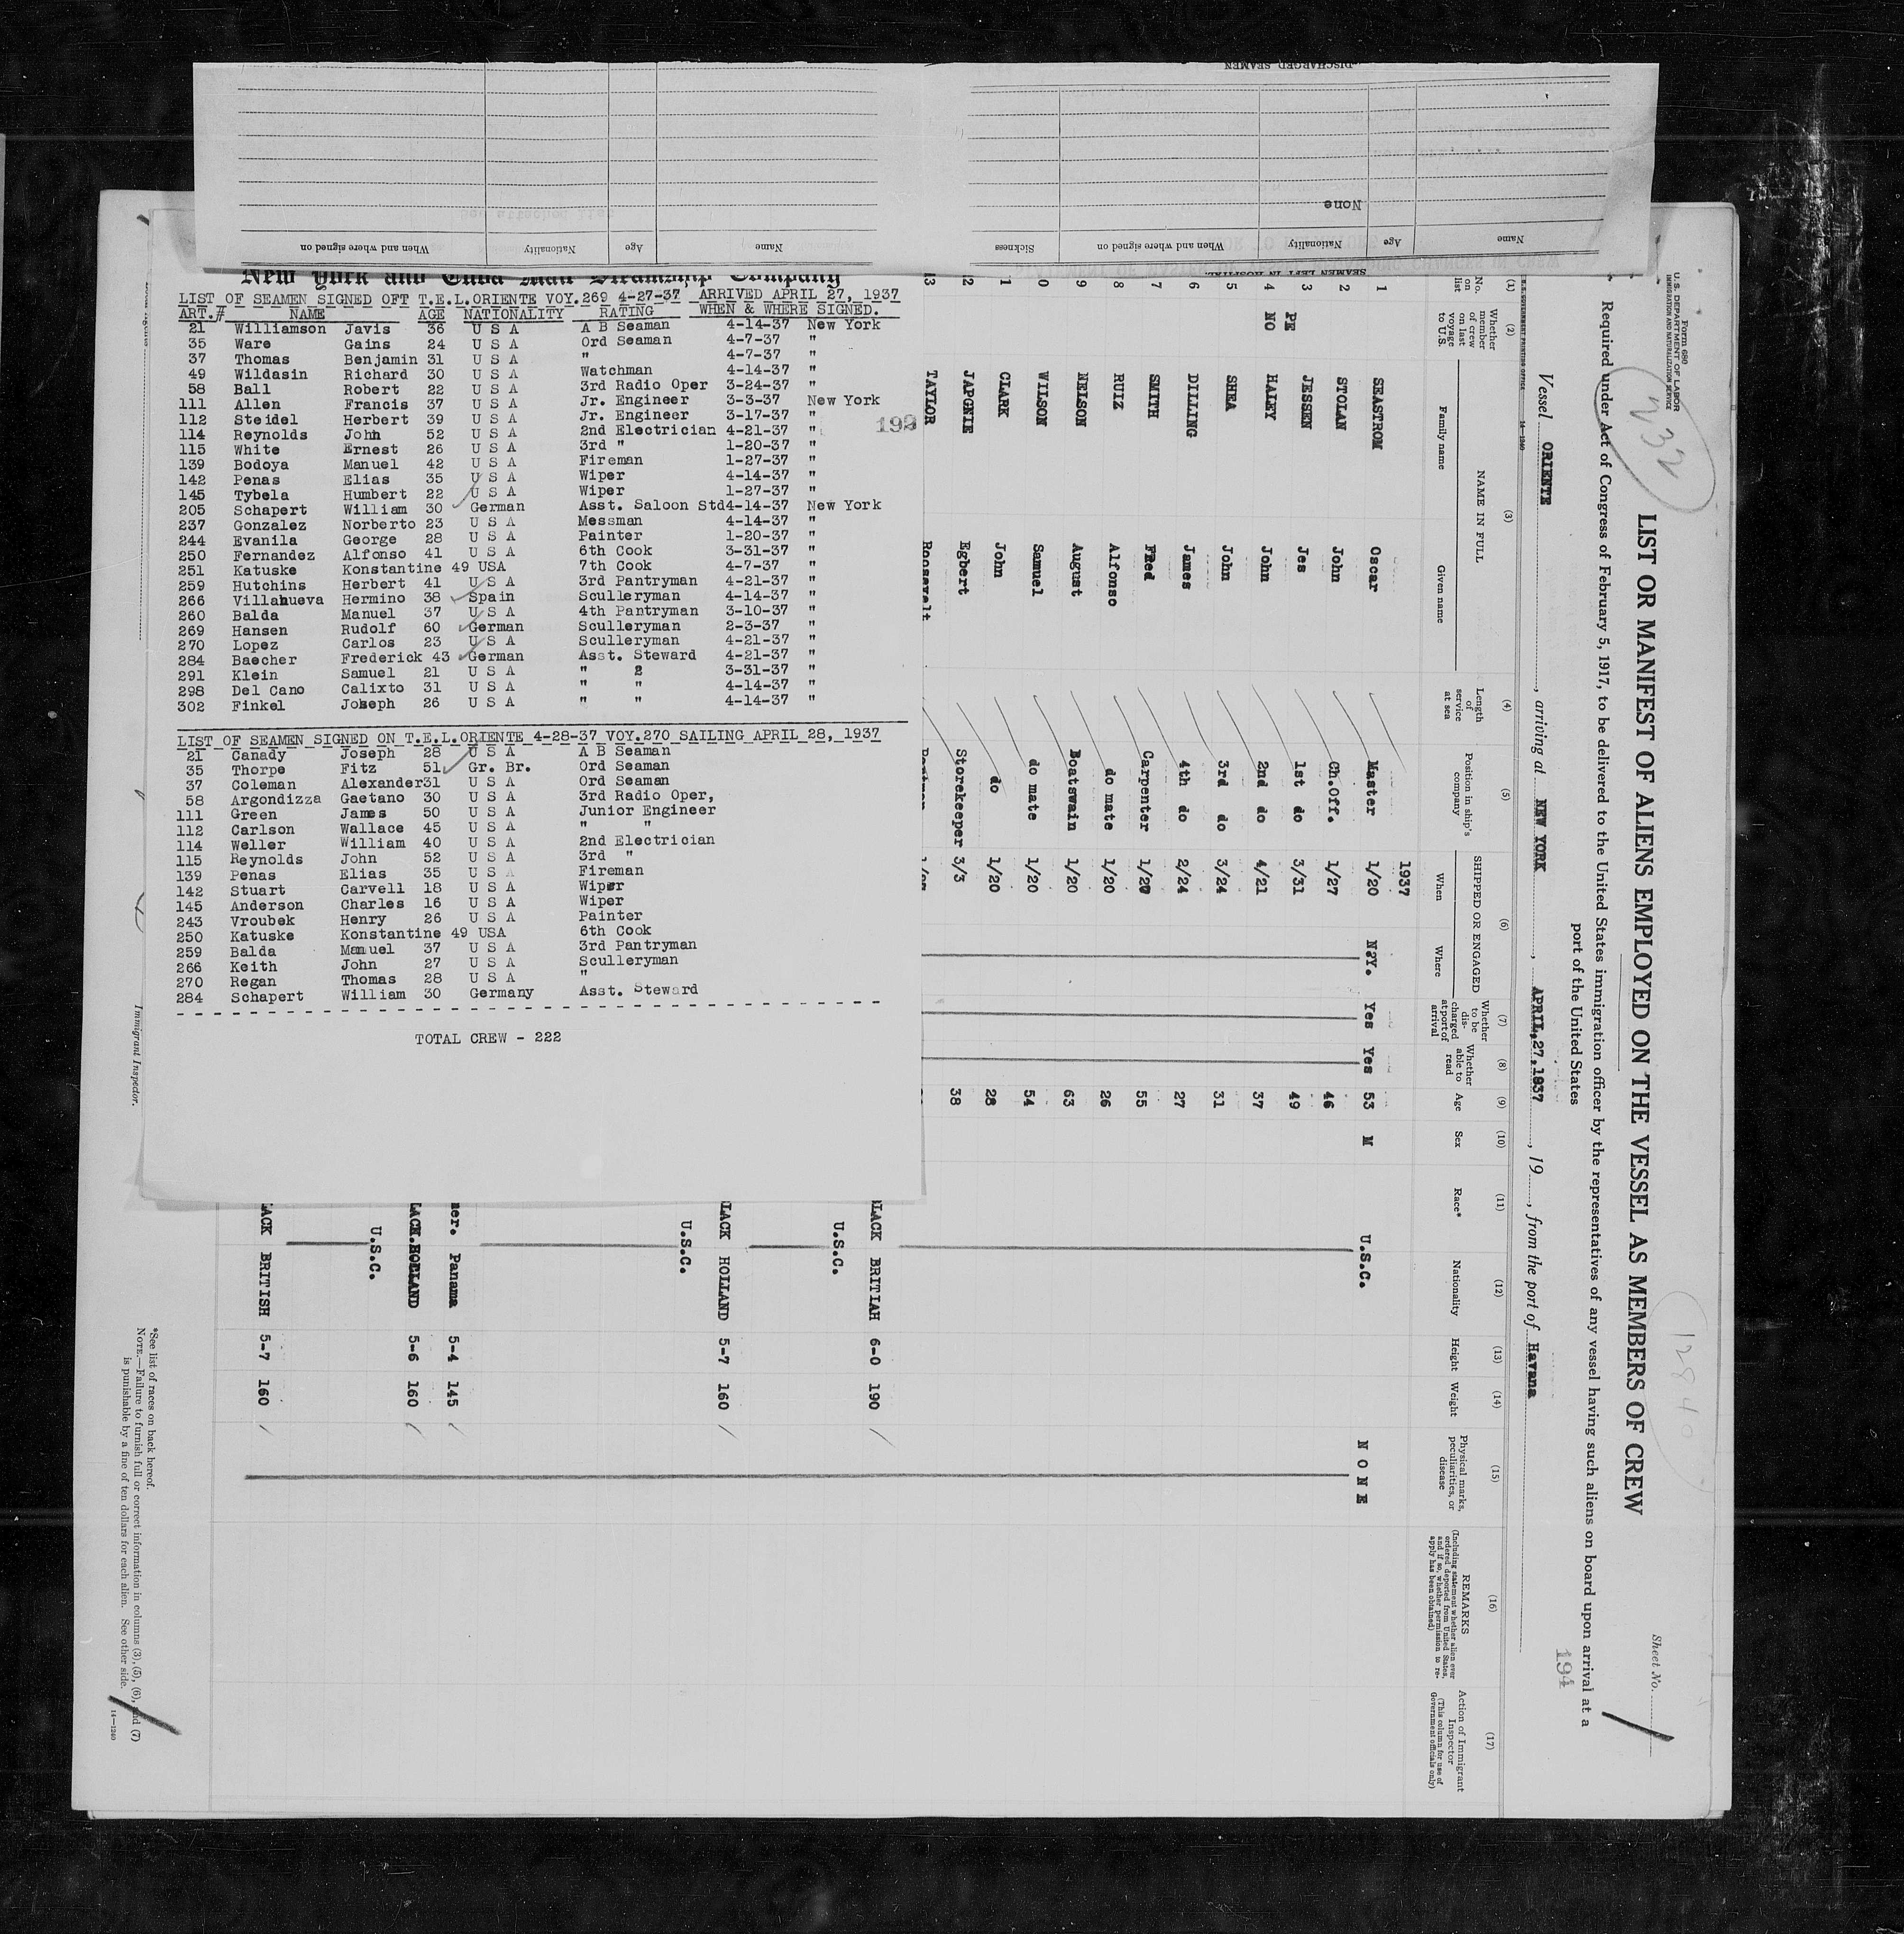 DISCHARGED SEAMEN
None
When and where signed on Nationality Age Name
Sickness When and where signed on Nationality Age Name
SEAMEN LEFT IN HOSPITAL.
New York and Cuba Mail Steamship Company
LIST OF SEAMEN SIGNED OFT T.E.L.ORIENTE VOY.269 4-27-37 ARRIVED APRIL 27, 1937
ART.# NAME AGE NATIONALITY RATING WHEN & WHERE SIGNED.
21 Williamson Javis 36 U S A A B Seaman 4-14-37 New York
35 Ware Gains 24 U S A Ord Seaman 4-7-37 "
37 Thomas Benjamin 31 U S A " 4-7-37 "
49 Wildasin Richard 30 U S A Watchman 4-14-37 "
58 Ball Robert 22 U S A 3rd Radio Oper 3-24-37 "
111 Allen Francis 37 U S A Jr. Engineer 3-3-37 New York
112 Steidel Herbert 39 U S A Jr. Engineer 3-17-37 "
114 Reynolds John 52 U S A 2nd Electrician 4-21-37 "
115 White Ernest 26 U S A 3rd " 1-20-37 "
139 Bodoya Manuel 42 U S A Fireman 1-27-37 "
142 Penas Elias 35 U S A Wiper 4-14-37 "
145 Tybela Humbert 22 U S A Wiper 1-27-37 "
205 Schapert William 30 German Asst. Saloon Std4-14-37 New York
237 Gonzalez Norberto 23 U S A Messman 4-14-37 "
244 Evanila George 28 U S A Painter 1-20-37 "
250 Fernandez Alfonso 41 U S A 6th Cook 3-31-37 "
251 Katuske Konstantine 49 USA 7th Cook 4-7-37 "
259 Hutchins Herbert 41 U S A 3rd Pantryman 4-21-37 "
266 Villahueva Hermino 38 Spain Sculleryman 4-14-37 "
260 Balda Manuel 37 U S A 4th Pantryman 3-10-37 "
269 Hansen Rudolf 60 German Sculleryman 2-3-37 "
270 Lopez Carlos 23 U S A Sculleryman 4-21-37 "
284 Baecher Frederick 43 German Asst. Steward 4-21-37 "
291 Klein Samuel 21 U S A " 2 3-31-37 "
298 Del Cano Calixto 31 U S A " " 4-14-37 "
302 Finkel Joseph 26 U S A " " 4-14-37 "
LIST OF SEAMEN SIGNED ON T.E.L.ORIENTE 4-28-37 VOY.270 SAILING APRIL 28, 1937
21 Canady Joseph 28 U S A A B Seaman
35 Thorpe Fitz 51 Gr. Br. Ord Seaman
37 Coleman Alexander31 U S A Ord Seaman
58 Argondizza Gaetano 30 U S A 3rd Radio Oper,
111 Green James 50 U S A Junior Engineer
112 Carlson Wallace 45 U S A " "
114 Weller William 40 U S A 2nd Electrician
115 Reynolds John 52 U S A 3rd "
139 Penas Elias 35 U S A Fireman
142 Stuart Carvell 18 U S A Wiper
145 Anderson Charles 16 U S A Wiper
243 Vroubek Henry 26 U S A Painter
250 Katuske Konstantine 49 USA 6th Cook
259 Balda Manuel 37 U S A 3rd Pantryman
266 Keith John 27 U S A Sculleryman
270 Regan Thomas 28 U S A "
284 Schapert William 30 Germany Asst. Steward
TOTAL CREW - 222
193
Form 680
U.S. DEPARTMENT OF LABOR
IMMIGRATION AND NATURALIZATION SERVICE
232
12840
Sheet No.
LIST OR MANIFEST OF ALIENS EMPLOYED ON THE VESSEL AS MEMBERS OF CREW
Required under Act of Congress of February 5, 1917, to be delivered to the United States immigration officer by the representatives of any vessel having such aliens on board upon arrival at a
port of the United States
194
Vessel ORIENTE, arriving at NEW YORK, APRIL,27,1937, 19, from the port of Havana
U.S. GOVERNMENT PRINTING OFFICE 14-1240
(1) (2) (3) (4) (5) (6) (7) (8) (9) (10) (11) (12) (13) (14) (15) (16) (17)
No. on list
Whether member of crew on last voyage to U.S.
NAME IN FULL
Family name Given name
Length of service at sea
Position in ship's company
SHIPPED OR ENGAGED
When Where
Whether to be discharged at port of arrival
Whether able to read
Age
Sex
Race*
Nationality
Height
Weight
Physical marks, peculiarities, or disease
REMARKS
(Including statement whether alien ever ordered deported from United States, and if so, whether permission to reapply has been obtained)
Action of Immigrant Inspector
(This column for use of Government officials only)
1937
1 SEASTROM Oscar Master 1/20 N?Y. Yes Yes 53 M U.S.C. N O N E
2 STOLAN John Ch.Off. 1/27 46
3 PE JESSEN Jes 1st do 3/31 49
4 NO HALEY John 2nd do 4/21 37
5 SHEA John 3rd do 3/24 31
6 DILLING James 4th do 2/24 27
7 SMITH Fred Carpenter 1/20 55
8 RUIZ Alfonso do mate 1/20 26
9 NELSON August Boatswain 1/20 63
0 WILSON Samuel do mate 1/20 54
1 CLARK John do 1/20 28
2 JAPGNIE Egbert Storekeeper 3/3 38
13 TAYLOR Roosevelt
LACK BRITIAH 6-0 190
U.S.C.
LACK HOLLAND 5-7 160
U.S.C.
mer. Panama 5-4 145
LACK.HOLLAND 5-6 160
U.S.C.
LACK BRITISH 5-7 160
Immigrant Inspector.
*See list of races on back hereof.
NOTE.—Failure to furnish full or correct information in columns (3), (5), (6), and (7)
is punishable by a fine of ten dollars for each alien. See other side.
14-1240